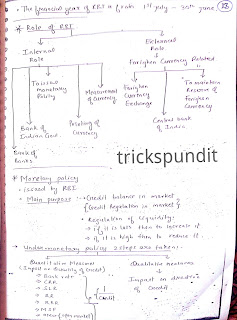 • The financial year of RBI is from 1st july - 30th june
* Role of RBI
Internal Role
External Role
Foreign Currency Related
To issue monetary Policy
Measurement of Currency
Foreign Currency Exchange
To maintain Reserve of foreign Currency
Bank of Indian Govt.
Printing of Currency
Central bank of India
Bank of Banks
trickspundit
* Monetary policy
- issued by RBI
- Main purpose → Credit balance in market
{Credit Regulation in market}
• Regulation of liquidity
→ if it is less than to increase it
→ if it is high than to reduce it
- Under monetary policy 2 steps are taken:-
Quantitative Measures
(Impact on Quantity of Credit)
Qualitative measures
Impact on direction of Credit
Bank rate
CRR
SLR
RR
RRR
MSF
Credit